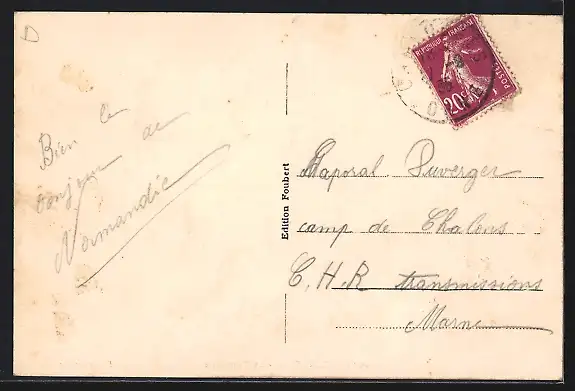 D
Bien le
bonjour de
Normandie
Edition Foubert
REPUBLIQUE FRANÇAISE
20c
POSTES
Caporal Duverger
camp de Chalons
C.H.R transmissions
Marne